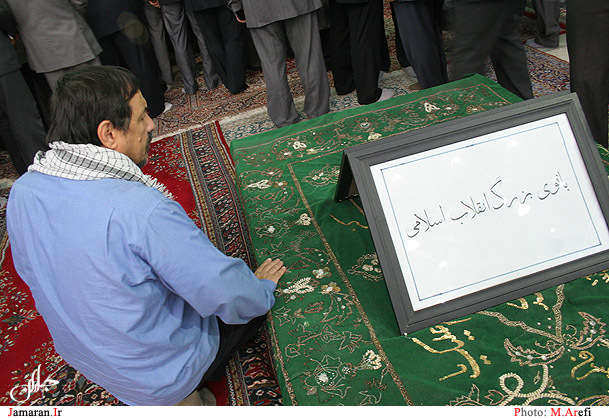 بانوی بزرگ انقلاب اسلامی
جماران
Jamaran.Ir
Photo: M.Arefi